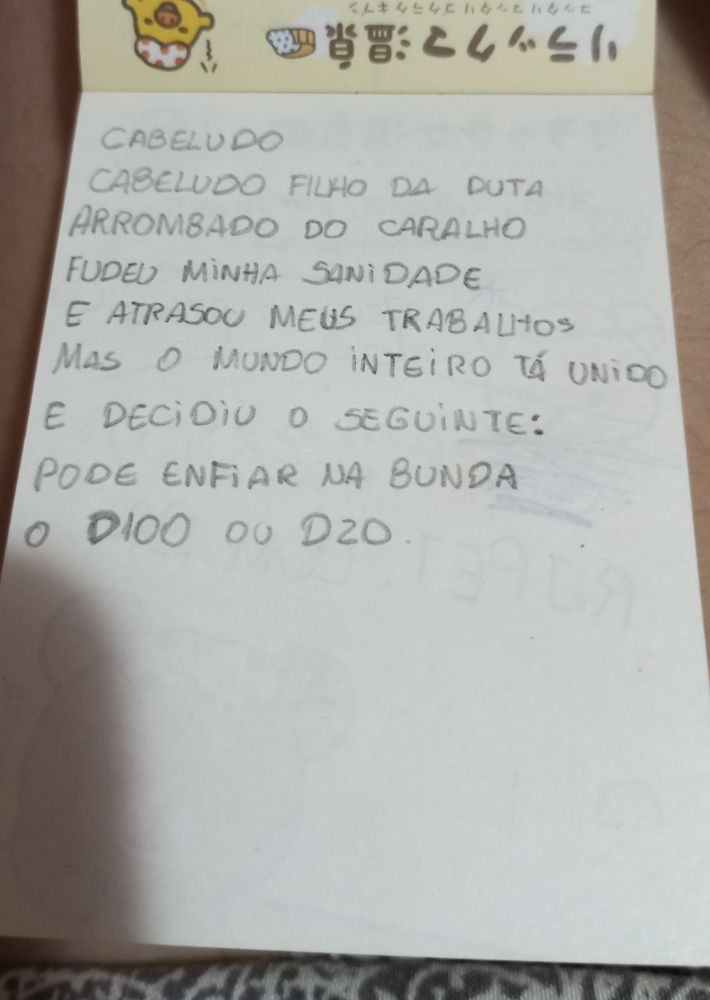 リラックマ消しゴム
CABELUDO
CABELUDO FILHO DA PUTA
ARROMBADO DO CARALHO
FUDEU MINHA SANIDADE
E ATRASOU MEUS TRABALHOS
MAS O MUNDO INTEIRO TÁ UNIDO
E DECIDIU O SEGUINTE:
PODE ENFIAR NA BUNDA
O D100 OU D20.